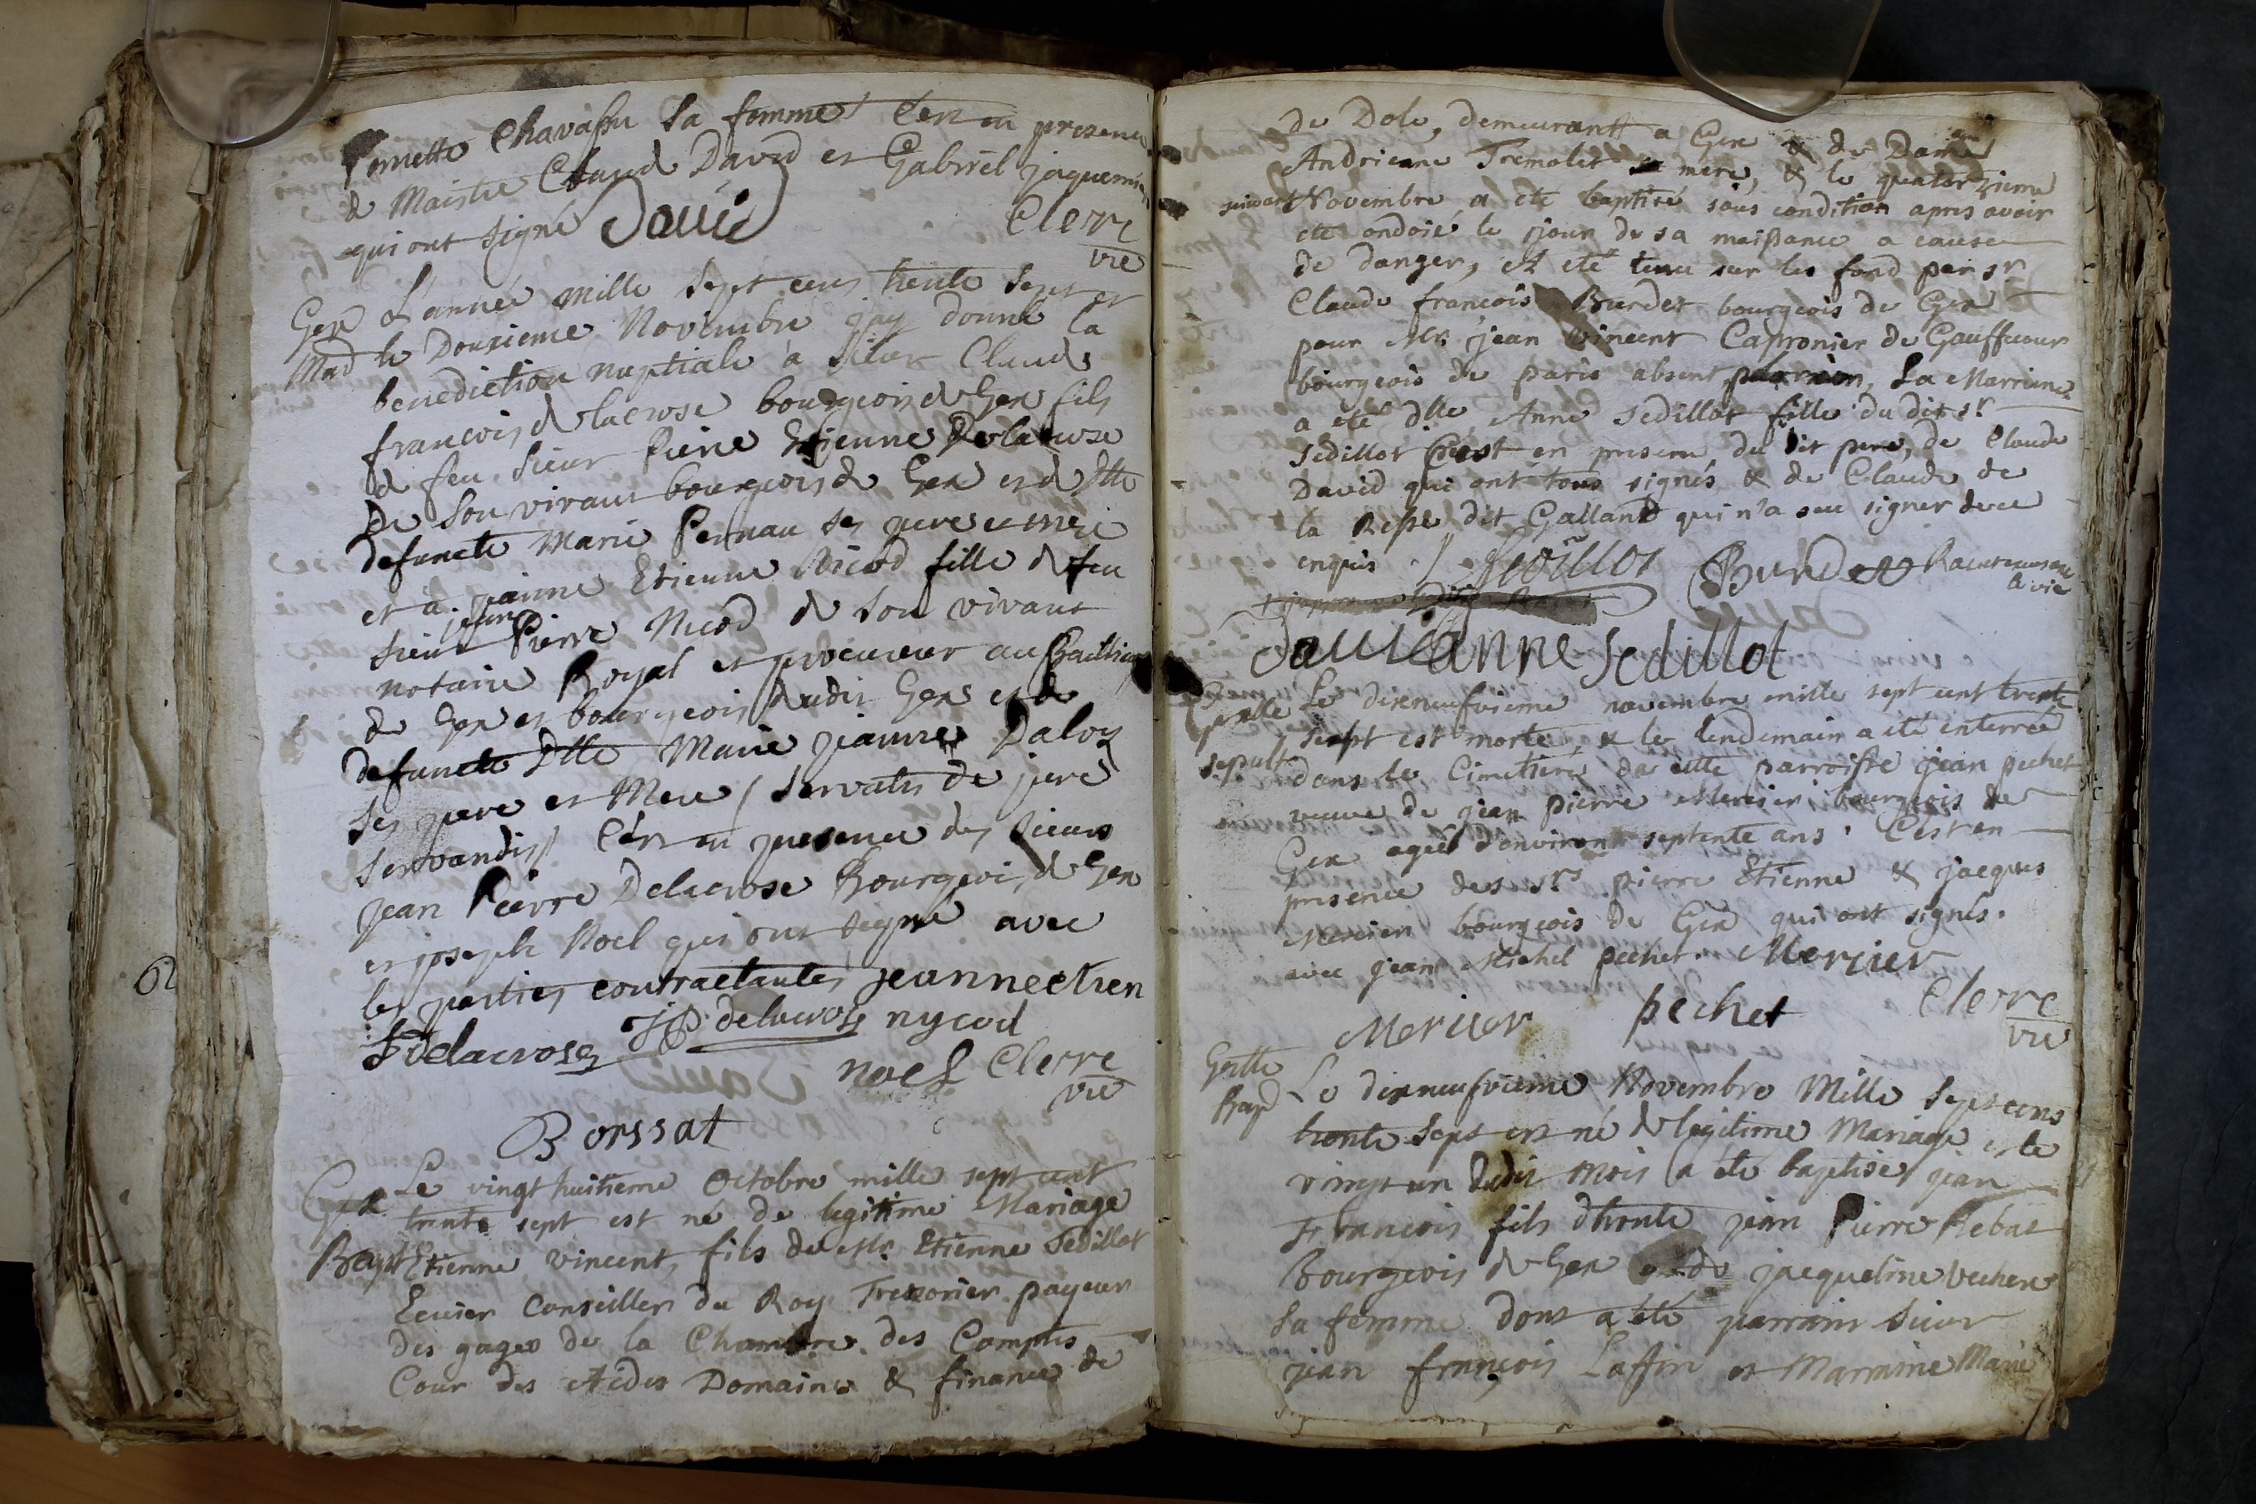 Pernette Chavassu sa femme C'est en presence
de Maistre Claud David et Gabriel jaquemin
qui ont signé David Clerc
vic
Gex L'année mille sept cens trente sept et
Mad le Douzieme Novembre jay donné la
benediction nuptiale a sieur Claude
francois delacrose bourgeois de Gex fils
de feu sieur Pierre Etienne Delacrose
De son vivant bourgeois de Gex et de Dlle
defuncte Marie Pernau ses pere et mere
et a jeanne Etienne Nicod fille de feu
sieur jean Pierre Nicod de son vivant
notaire Royal et procureur au Bailliage
de Gex et bourgeois dudit Gex et de
defuncte Dlle Marie jeanne Daloz
ses pere et Mere / servatis de jure
servandis / C'est en presence des sieurs
jean Pierre Delacrose Bourgeois de Gex
et joseph Noel qui ont signé avec
les parties contractantes jeannectien
F delacrose JP. delacrose nycod
noel Clerc
vic
Borssat
Gex Le vingt huitieme Octobre mille sept cent
trente sept est né de legitime Mariage
Bapt Etienne vincent, fils de Mr. Etienne Sedillot
Ecuier Conseiller du Roy Tresorier payeur
des gages de la Chambre des Comptes
Cour des Aides Domaines & finances de
de Dole, demeurantt a Gex & de Dame
Andrienne Tremolet sa mere, & le quatorzieme
suivant Novembre a été baptisé sous condition apres avoir
eté ondoié le jour de sa naissance a cause
de danger, et eté tenu sur les fond par sr
Claude françois Burdet bourgeois de Gex
pour Mr. jean vincent Capronier de Gauffecour
bourgeois de paris absent parrain, La Marrienne
a eté dlle Anne Sedillot fille du dit sr
Sedillot C'est en presence du dit pere, de Claude
David qui ont tous signés & de Claude de
la Resse dit Galland qui n'a seu signer de ce
enquis / Sedillot Burdet
David anne Sedillot
Le dixneufvieme novembre mille sept cent trente
sept est morte, & le lendemain a eté enterrée
sepult. dans le Cimetiere de cette parroisse jean pechet
veuve de jean pierre Mercier bourgeois de
Gex agée d'environt septente ans. C'est en
presence des srs pierre Etienne & jacques
Mercier bourgeois de Gex qui ont signés.
avec jean Michel pechet. Mercier
Mercier pechet Clerc
vic
Bap Le dixneufvieme Novembre Mille sept cens
trente sept est né de legitime Mariage et le
vingt un dudit mois a été baptisé jean
Francois fils d'honte jean Pierre Rebat
Bourgeois de Gex et de jacqueline vuchere
sa femme dont a été parrain sieur
jean françois Laffin et Marraine Marie